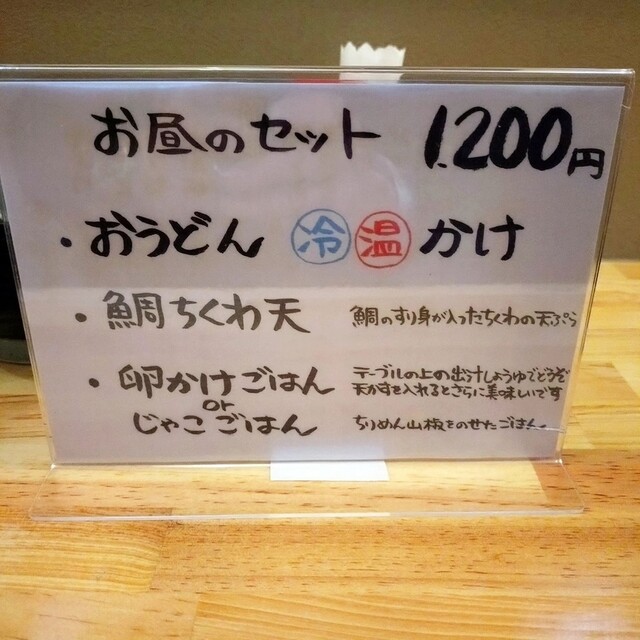 お昼のセット 1.200円
・おうどん 冷 温 かけ
・鯛ちくわ天 鯛のすり身が入ったちくわの天ぷら
・卵かけごはん テーブルの上の出汁しょうゆでどうぞ
天かすを入れるとさらに美味しいです
or
じゃこごはん ちりめん山椒をのせたごはん。